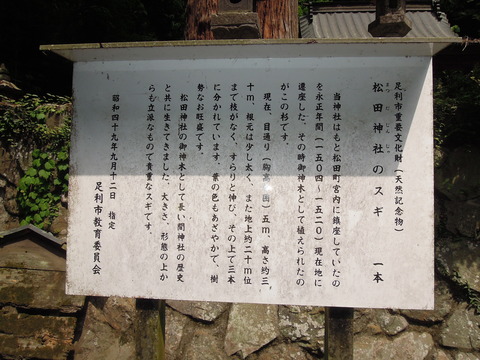 足利市重要文化財（天然記念物）
松田神社のスギ　一本
まつだじんじゃ
当神社はもと松田町宮内に鎮座していたの
を永正年間（一五〇四～一五二〇）現在地に
遷座した、その時御神木として植えられたの
がこの杉です。
現在、目通り（胸高 囲）五m、高さ約三
十m、根元は少し太く、また地上約二十m位
まで枝がなく、すらりと伸び、その上で三本
に分かれています。葉の色もあざやかで、樹
勢なお旺盛です。
松田神社の御神木として長い間神社の歴史
と共に生きてきました、大きさ、形態の上か
らも立派なもので貴重なスギです。
昭和四十九年九月十二日　指定
足利市教育委員会